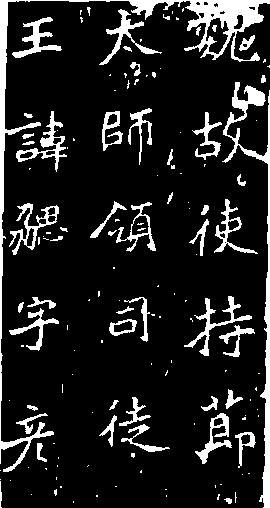 魏故使持節
太師領司徒
王諱勰字彦